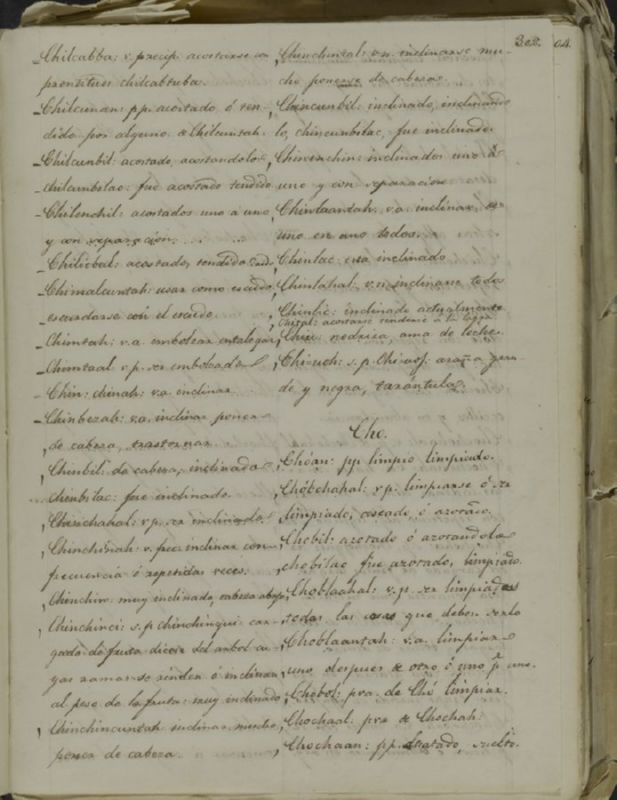 302. 04.
Chilcabba: v. precip. acostarse con
prontitud chilcabtuba.
Chilcunan: pp. acostado ó ten-
dido por alguno de Chilcuntah.
Chilcunbil: acostado, acostandolo,
chilcunbilac: fué acostado tendido
Chilenchil: acostados uno a uno,
y con separacion.
Chilicbal: acostado, tendido
Chimalcuntah: usar como escudo,
escudarse con el escudo.
Chimtah: v.a. embolsar entalegar
Chimtaal v.p. ser embolsado
Chin: chinah: v.a. inclinar
Chinbezah: v.a. inclinar poner
de cabeza, trastornar
Chinbil: de cabeza, inclinado
Chinbilac: fué inclinado.
Chinchahal: v.p. ser inclinado.
Chinchinah: v. frec. inclinar con
frecuencia ó repetidas veces.
Chinchin: muy inclinado, cabeza abajo
Chinchinci: s.p. chinchinqui car-
gado de fruta dicese del arbol cu-
yas ramas se rinden ó inclinan
al peso de la fruta: muy inclinado
Chinchincuntah inclinar mucho,
poner de cabeza.
Chinchinzal: v.n. inclinarse mu-
cho ponerse de cabeza.
Chincunbil: inclinado, inclinando
lo, chincunbilac, fué inclinado.
Chinenchin: inclinados uno á
uno y con separacion
Chinlaantah. v.a. inclinar,
uno en uno todos.
Chinlac: esta inclinado
Chinlahal: v.n. inclinarse todo
Chinlic: inclinado actualmente
Chizal: acostarse tenderse á la larga
nodriza, ama de leche.
Chiuoh: s.p. araña gran-
de y negra, tarántula.
Cho.
Chóan: pp limpio limpiado.
Chóbchahal: v.p. limpiarse ó ser
limpiado, aseado, ó azotado.
Chobil: azotado ó azotandola
chobilac fué azotado, limpiado.
Choblaahal: v.p. ser limpiadas
todas las cosas que deben serlo
Choblaantah: v.a. limpiar
uno despues de otro ó uno pr. uno.
Chobol: pva. de Chó limpiar.
Chochaal: pva de Chochah.
Chochaan: pp. desatado, suelto.